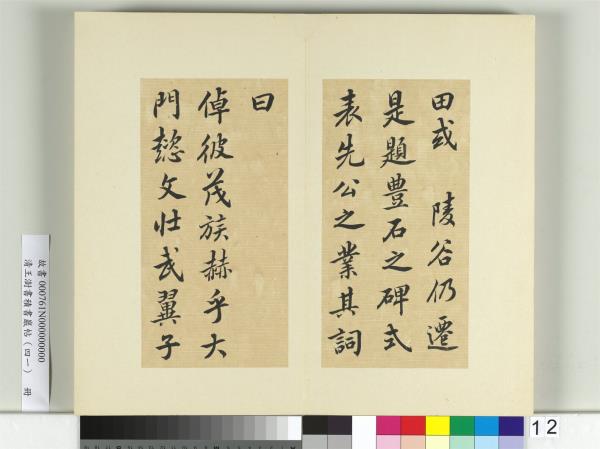 田或　陵谷仍遷
是題豊石之碑式
表先公之業其詞
曰
倬彼茂族赫乎大
門懿文壯武翼子
故書 000761N000000000
清王澍書積書巖帖（四一） 冊
12